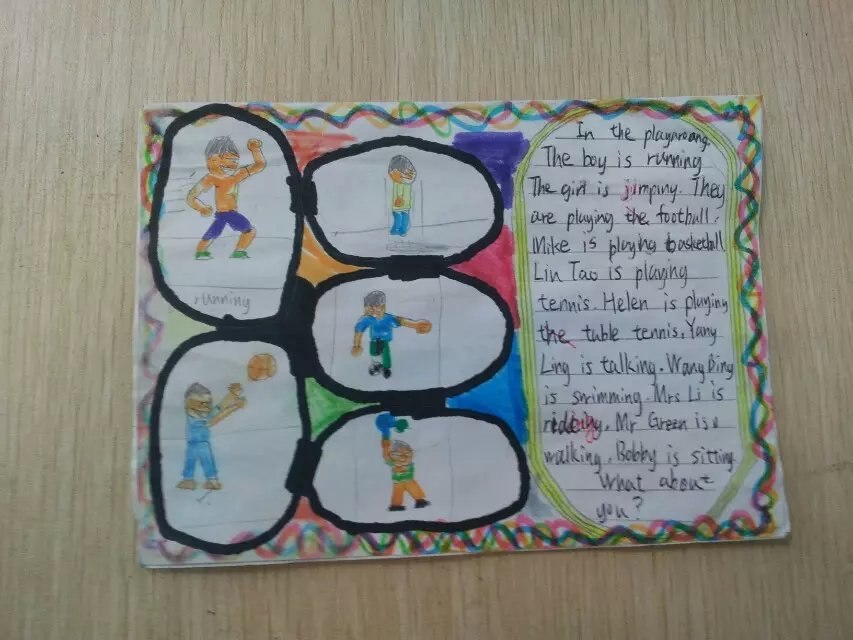 running
In the playgroang.
The boy is running
The girl is jimping. They
are playing the football.
Mike is playing basketball
Lin Tao is playing
tennis. Helen is playing
the table tennis. Yang
Ling is talking. Wang Ding
is swimming. Mrs Li is
Mr Green is a
walking. Bobby is sitting.
What about
you?